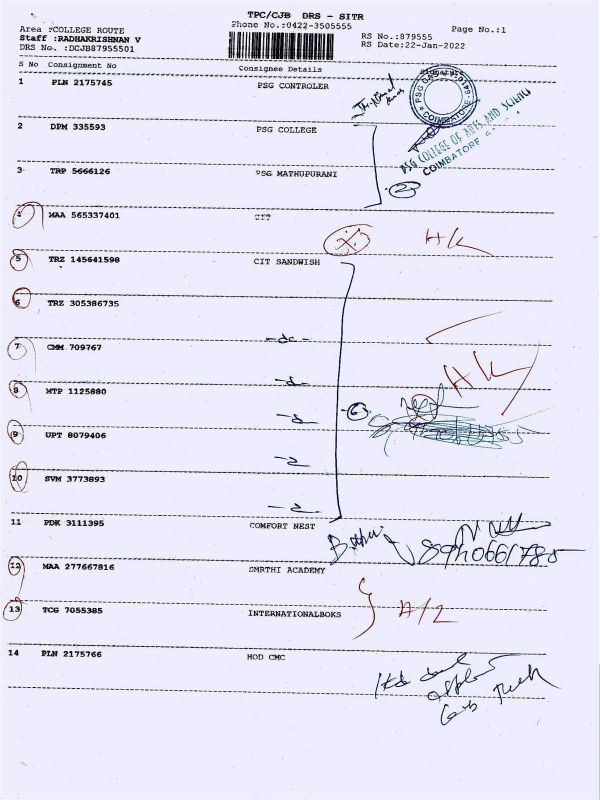 TPC/CJB DRS - SITR
Area :COLLEGE ROUTE
Phone No.:0422-3505555
Page No.:1
Staff :RADHAKRISHNAN V
RS No.:879555
DRS No. :DCJB87955501
RS Date:22-Jan-2022
S No Consignment No Consignee Details Signature
1 PLN 2175745 PSG CONTROLER
PSG COLLEGE OF ARTS AND SCIENCE
COIMBATORE
2 DPM 335593 PSG COLLEGE
3 TRP 5666126 PSG MATHUPURANI
2
4 MAA 565337401 CIT
HK
5 TRZ 145641598 CIT SANDWISH
6 TRZ 305386735
7 CMM 709767 -do-
8 MTP 1125880
HK
6
9 UPT 8079406
10 SVM 3773893
11 PDK 3111395 COMFORT NEST
8940661785
12 MAA 277667816 SMRTHI ACADEMY
13 TCG 7055385 INTERNATIONALBOKS
14 PLN 2175766 HOD CMC